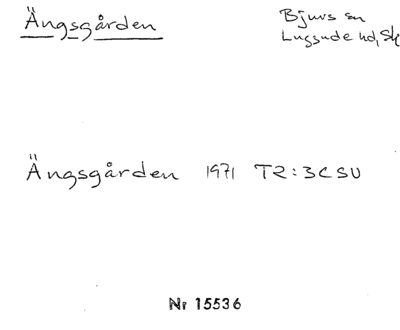 Ängsgården
Bjuvs sn
Luggude hd, Sk
Ängsgården 1971 TR: 3C SV
Nr 15536